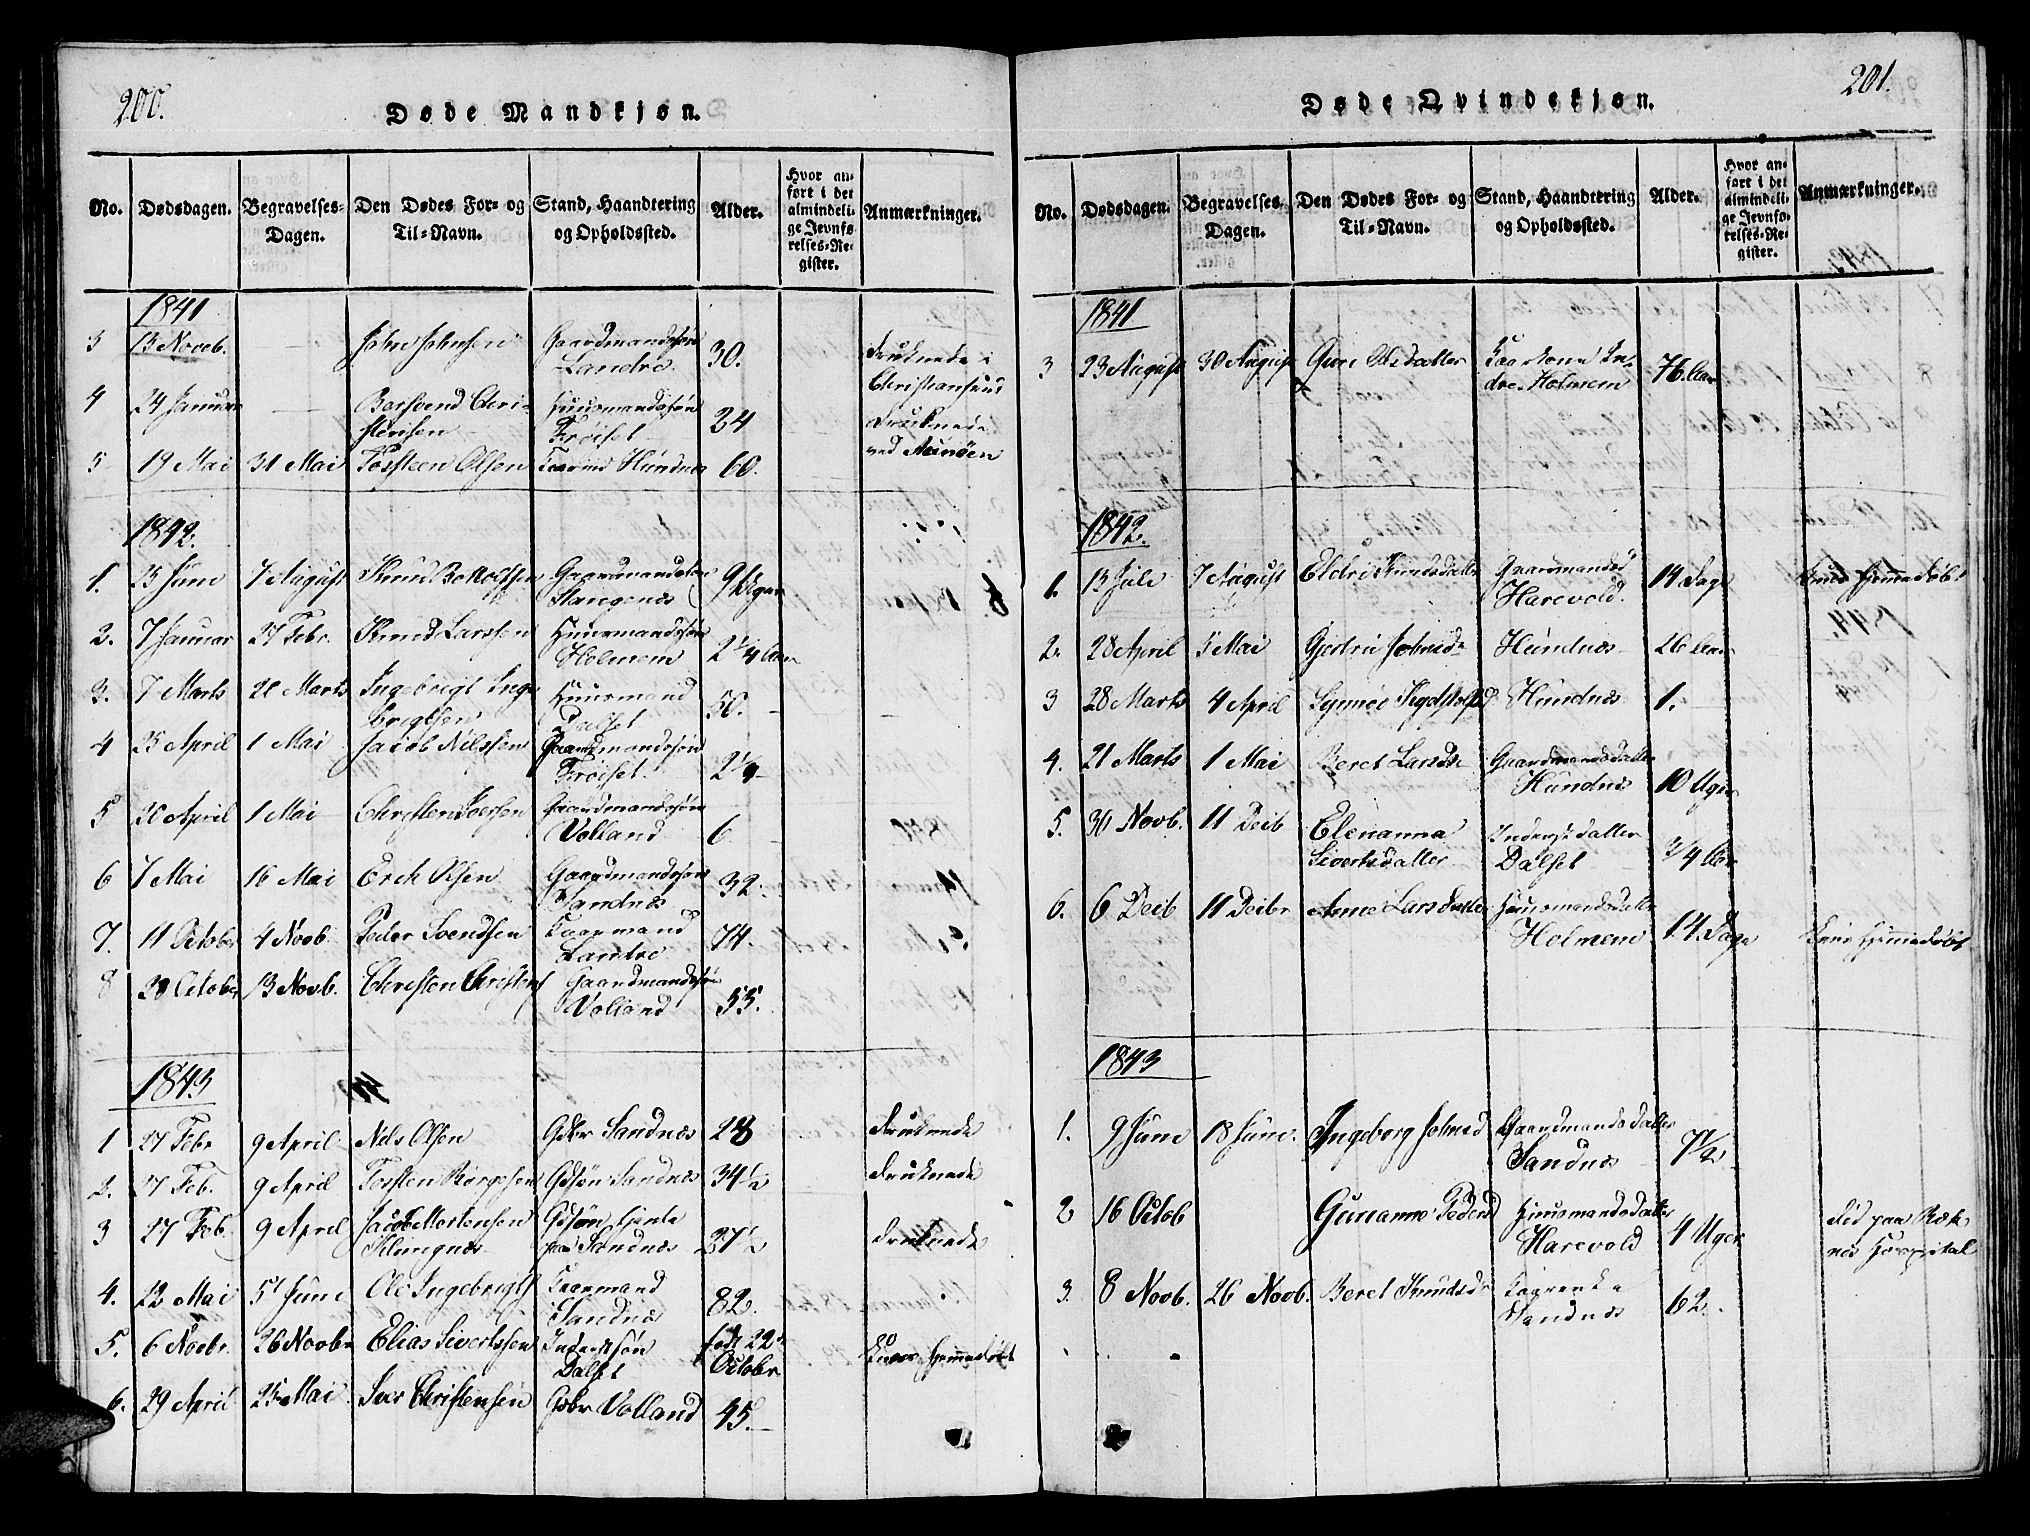 200.
Døde Mandkjøn.
No. Dødsdagen. Begravelses-Dagen. Den Dødes For- og Til-Navn. Stand, Haandtering og Opholdssted. Alder. Hvor anført i det almindelige Jevnførelses-Register. Anmærkninger.
1841
3 13 Noveb. John Johnsen Gaardmandssøn 30. druknede i
Landre Christiansund
4 24 Januar Berhend Chri- Huusmandssøn 24 druknede
stensen Frøiset ved
5 19 Mai 31 Mai Torsteen Olsen Hundnes 60.
1842.
1. 25 Juni 7 August Knud Bottolfsen Gaardmandssøn 9 Uger
Stangenes
2. 7 Januar 27 Febr. Knud Larssen Huusmandssøn 2 1/4 Aar
Holmem
3. 7 Marts 20 Marts Ingebrigt Inge- Huusmand 50.
brigtsen Dalset
4 25 April 1 Mai Jacob Nilssen Gaardmandssøn 2 1/4
Frøiset
5 20 April 1 Mai Christen Gaardmandssøn 6
Volland
6 7 Mai 16 Mai Erik Olsen Gaardmandssøn 32.
Sandnes
7. 11 October 4 Novb. Peder Svendsen Kaarmand 74.
Landre
8 30 October 13 Novb. Christen Christens Gaardmandssøn 55.
Volland
1843
1 27 Febr 9 April Nils Olsen Gdbr Sandnes 28 druknede
2. 27 Feb. 9 April Torsten Børgesen Gdsøn Sandnes 34 1/2 druknede
3 27 Feb. 9 April Jacob Mortensen Gdsøn tjente 27 1/2 druknede
Klungnes paa Sandnes
4. 22 Mai 5 Juni Ole Ingebrigts Kaarmand 82.
Sandnes
5. 6 Novbr. 26 Novbr Elias Sivertssen Inderstsøn født 22
Dalset Octobr Hjemmedøbt
6. 29 April 25 Mai Iver Christensen Gdbr Volland 45.
201.
Døde Qvindekjøn.
No. Dødsdagen. Begravelses-Dagen. Den Dødes For- og Til-Navn. Stand, Haandtering og Opholdssted. Alder. Hvor anført i det almindelige Jevnførelses-Register. Anmærkninger.
1841
3 23 August 30 August Guri Olsdatter Kaarkone In- 76 Aar
dre Holmem
1842.
1. 13 Juli 7 August Eldri Knudsdatter Gaardmandsd 14 Dage Hjemmedøbt
Harevold.
2. 28 April 5 Mai Gjertru Johnsd Hundnes 26 Aar
3 28 Marts 4 April Synnøe Hundnes 1.
4. 21 Marts 1 Mai Beret Larsdtr Gaardmandsdatter
Hundnes 10 Uger
5. 30 Novb. 11 Decb Elenanna Inderstdatter 3/4 Aar
Sivertsdatter Dalset
6. 6 Decb 11 Decbr Anne Larsdatter Huusmandsdatter
Holmem 14 Dage Hjemmedøbt
1843
1. 9 June 18 June. Ingeborg Johnsd Gaardmandsdatter 7 1/2
Sandnes
2 16 Octob Gurianne Pedersd Huusmandsdatter 4 Uger død paa Rek-
Harevold nes Hospital
3. 8 Novb. 26 Novb. Beret Knudsd 62.
Sandnes